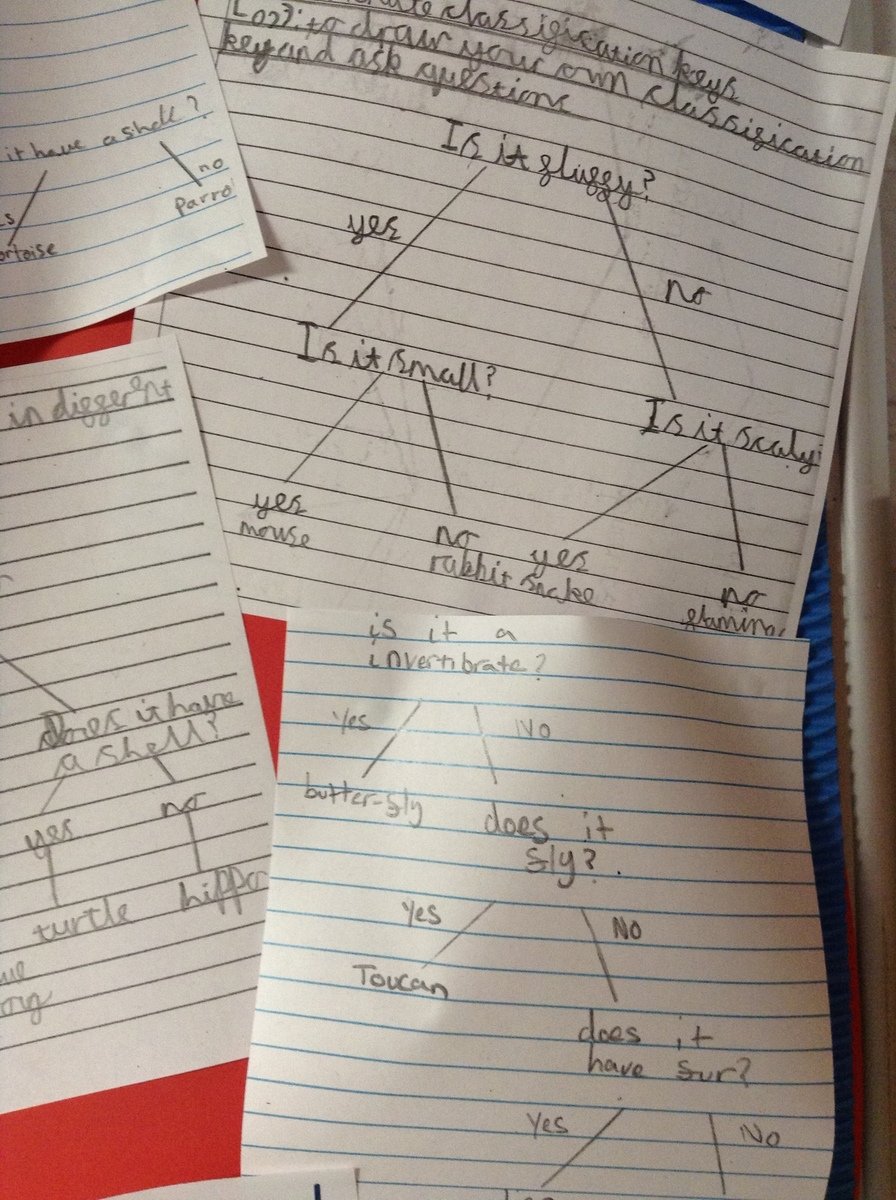 classification keys
Loo3: to draw your own classification
key and ask questions
Is it fluffy?
yes
no
Is it small?
Is it scaly
yes
mouse
no
rabbit
yes
snake
no
it have a shell?
no
in different
Does it have
a shell?
yes
no
turtle
hippo
is it a
invertibrate?
Yes
No
butter-fly
does it
fly?
Yes
NO
Toucan
does it
have fur?
Yes
No